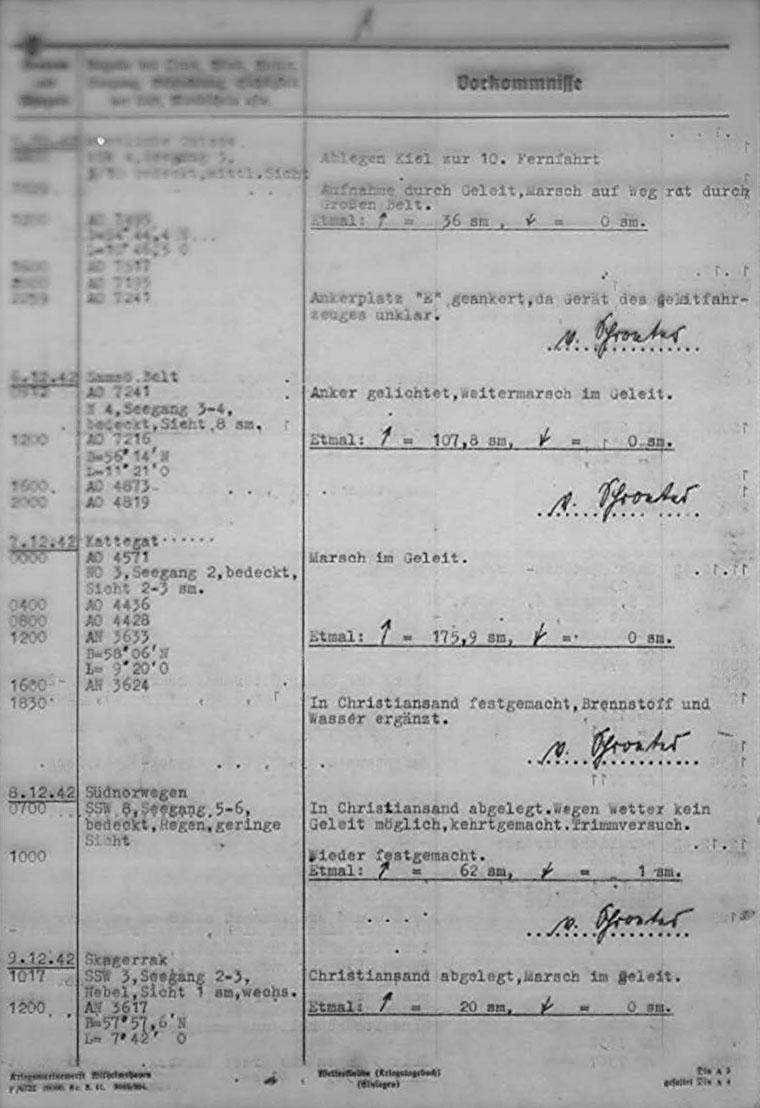 Vorkommnisse
Ablegen Kiel zur 10. Fernfahrt
bedeckt,mittl.Sicht
Aufnahme durch Geleit,Marsch auf Weg rat durch
Großen Belt.
1200 AO 7495
Etmal: ↑ = 36 sm, ↓ = 0 sm.
1600 AO 7517
2000 AO 7195
2259 AO 7241
Ankerplatz "E" geankert,da Gerät des geleitfahr-
zeuges unklar.
v. Schroeter
6.12.42 Samsö.Belt
0512 AO 7241 Anker gelichtet,Weitermarsch im Geleit.
N 4,Seegang 3-4,
bedeckt,Sicht 8 sm.
1200 AO 7216 Etmal: ↑ = 107,8 sm, ↓ = 0 sm.
B=56°14'N
L=11°21'O
1600 AO 4873
2000 AO 4819
v. Schroeter
7.12.42 Kattegat
0000 AO 4571 Marsch im Geleit.
NO 3,Seegang 2,bedeckt,
Sicht 2-3 sm.
0400 AO 4436
0800 AO 4428
1200 AN 3633 Etmal: ↑ = 175,9 sm, ↓ = 0 sm.
B=58°06'N
L= 9°20'O
1600 AN 3624
1830 In Christiansand festgemacht,Brennstoff und
Wasser ergänzt.
v. Schroeter
8.12.42 Südnorwegen
0700 SSW 8,Seegang 5-6, In Christiansand abgelegt.Wegen Wetter kein
bedeckt,Regen,geringe Geleit möglich,kehrtgemacht.Trimmversuch.
Sicht
1000 Wieder festgemacht.
Etmal: ↑ = 62 sm, ↓ = 1 sm.
v. Schroeter
9.12.42 Skagerrak
1017 SSW 3,Seegang 2-3, Christiansand abgelegt,Marsch im geleit.
Nebel,Sicht 1 sm,wechs.
1200 AN 3617 Etmal: ↑ = 20 sm, ↓ = 0 sm.
B=57°57,6'N
L= 7°42' O
Kriegsmarinewerft Wilhelmshaven (Kriegstagebuch) Din A 3
(Einlagen) gefaltet Din A 4